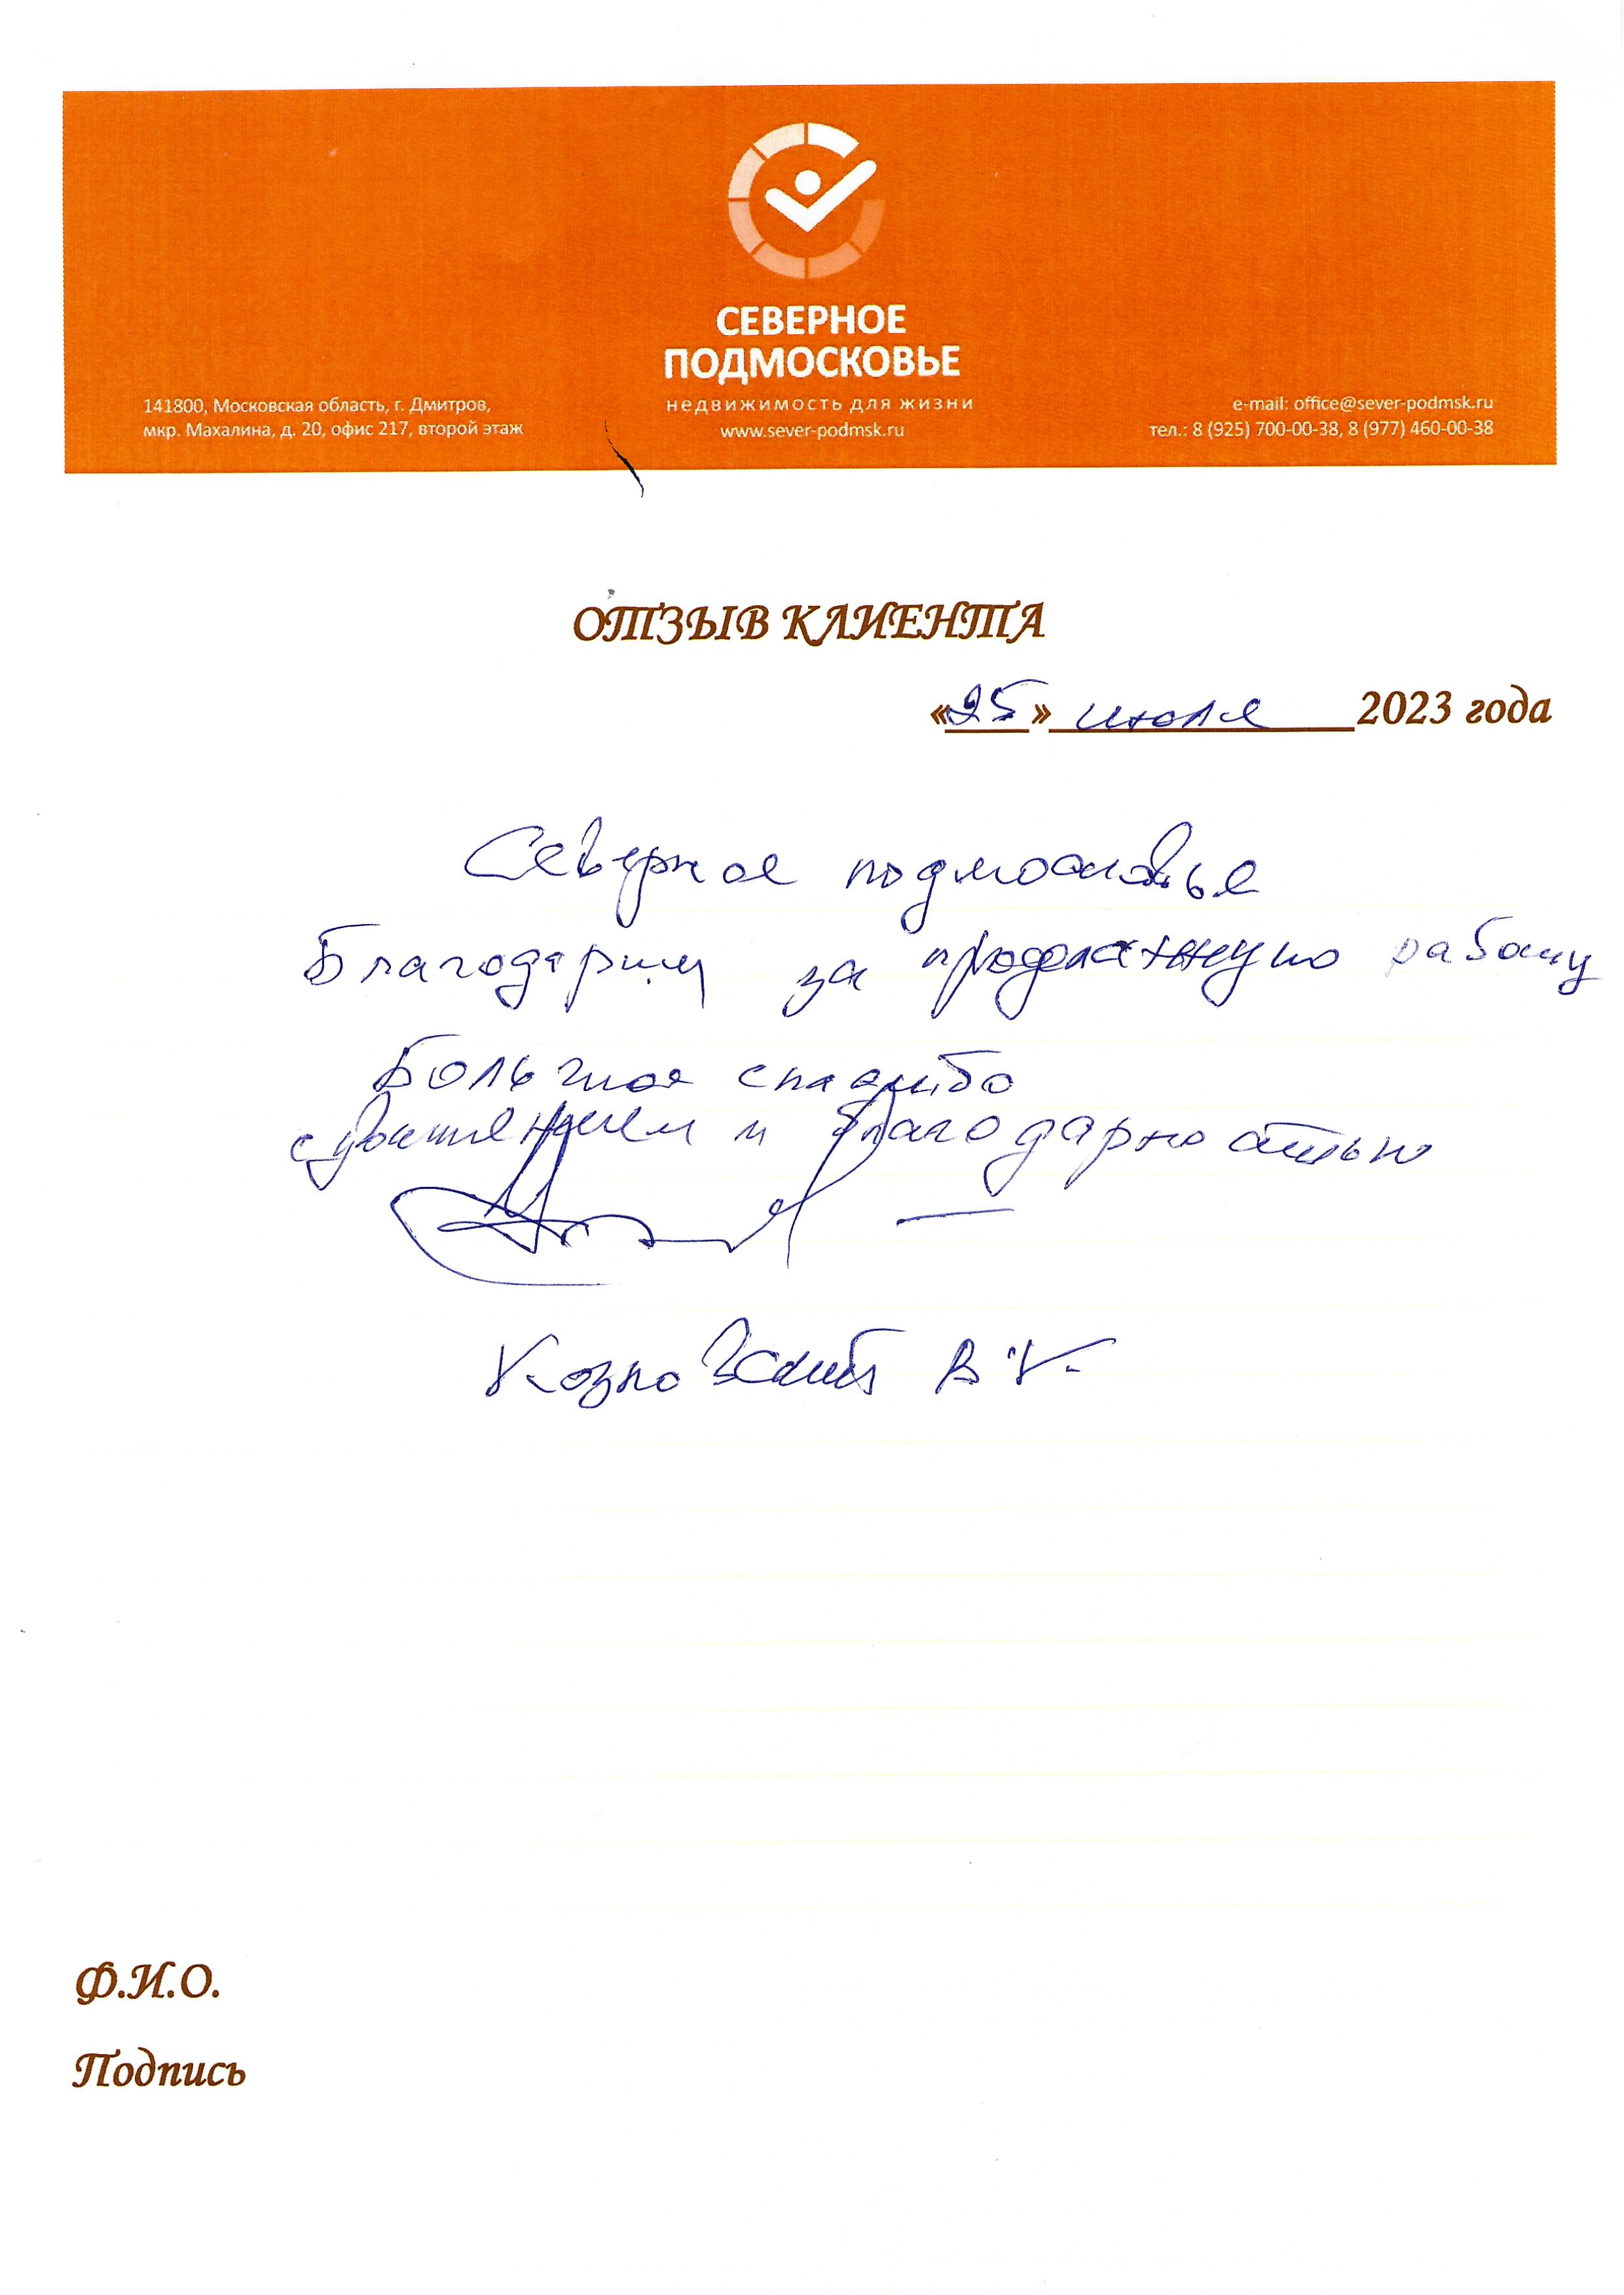 СЕВЕРНОЕ
ПОДМОСКОВЬЕ
недвижимость для жизни
www.sever-podmsk.ru
141800, Московская область, г. Дмитров,
мкр. Махалина, д. 20, офис 217, второй этаж
e-mail: office@sever-podmsk.ru
тел.: 8 (925) 700-00-38, 8 (977) 460-00-38
ОТЗЫВ КЛИЕНТА
«25» июля 2023 года
Северное подмосковье
Благодарим за работу
Большое спасибо
с уважением и благодарностью
В К.
Ф.И.О.
Подпись